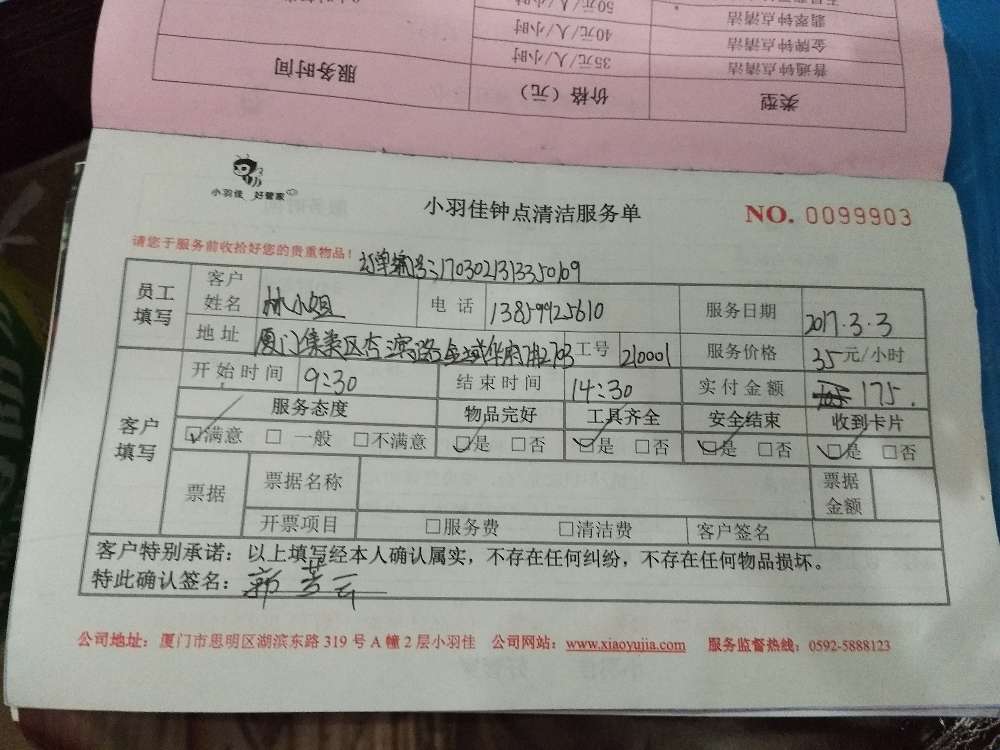 类型 价格（元） 服务时间
普通钟点清洁 35元/人/小时
金牌钟点清洁 40元/人/小时
翡翠钟点清洁 50元/人/小时
小羽佳 好管家
小羽佳钟点清洁服务单
NO. 0099903
请您于服务前收拾好您的贵重物品！
订单编号:1703021313350109
员工填写 客户姓名 林小姐 电话 13859925610 服务日期 2017.3.3
地址 厦门集美区杏滨路金域华府7#2703 工号 210001 服务价格 35元/小时
客户填写 开始时间 9:30 结束时间 14:30 实付金额 175.
服务态度 物品完好 工具齐全 安全结束 收到卡片
☑满意 □一般 □不满意 ☑是 □否 ☑是 □否 ☑是 □否 ☑是 □否
票据 票据名称 票据金额
开票项目 □服务费 □清洁费 客户签名
客户特别承诺：以上填写经本人确认属实，不存在任何纠纷，不存在任何物品损坏。
特此确认签名：
公司地址：厦门市思明区湖滨东路 319 号 A 幢 2 层小羽佳 公司网站：www.xiaoyujia.com 服务监督热线：0592-5888123